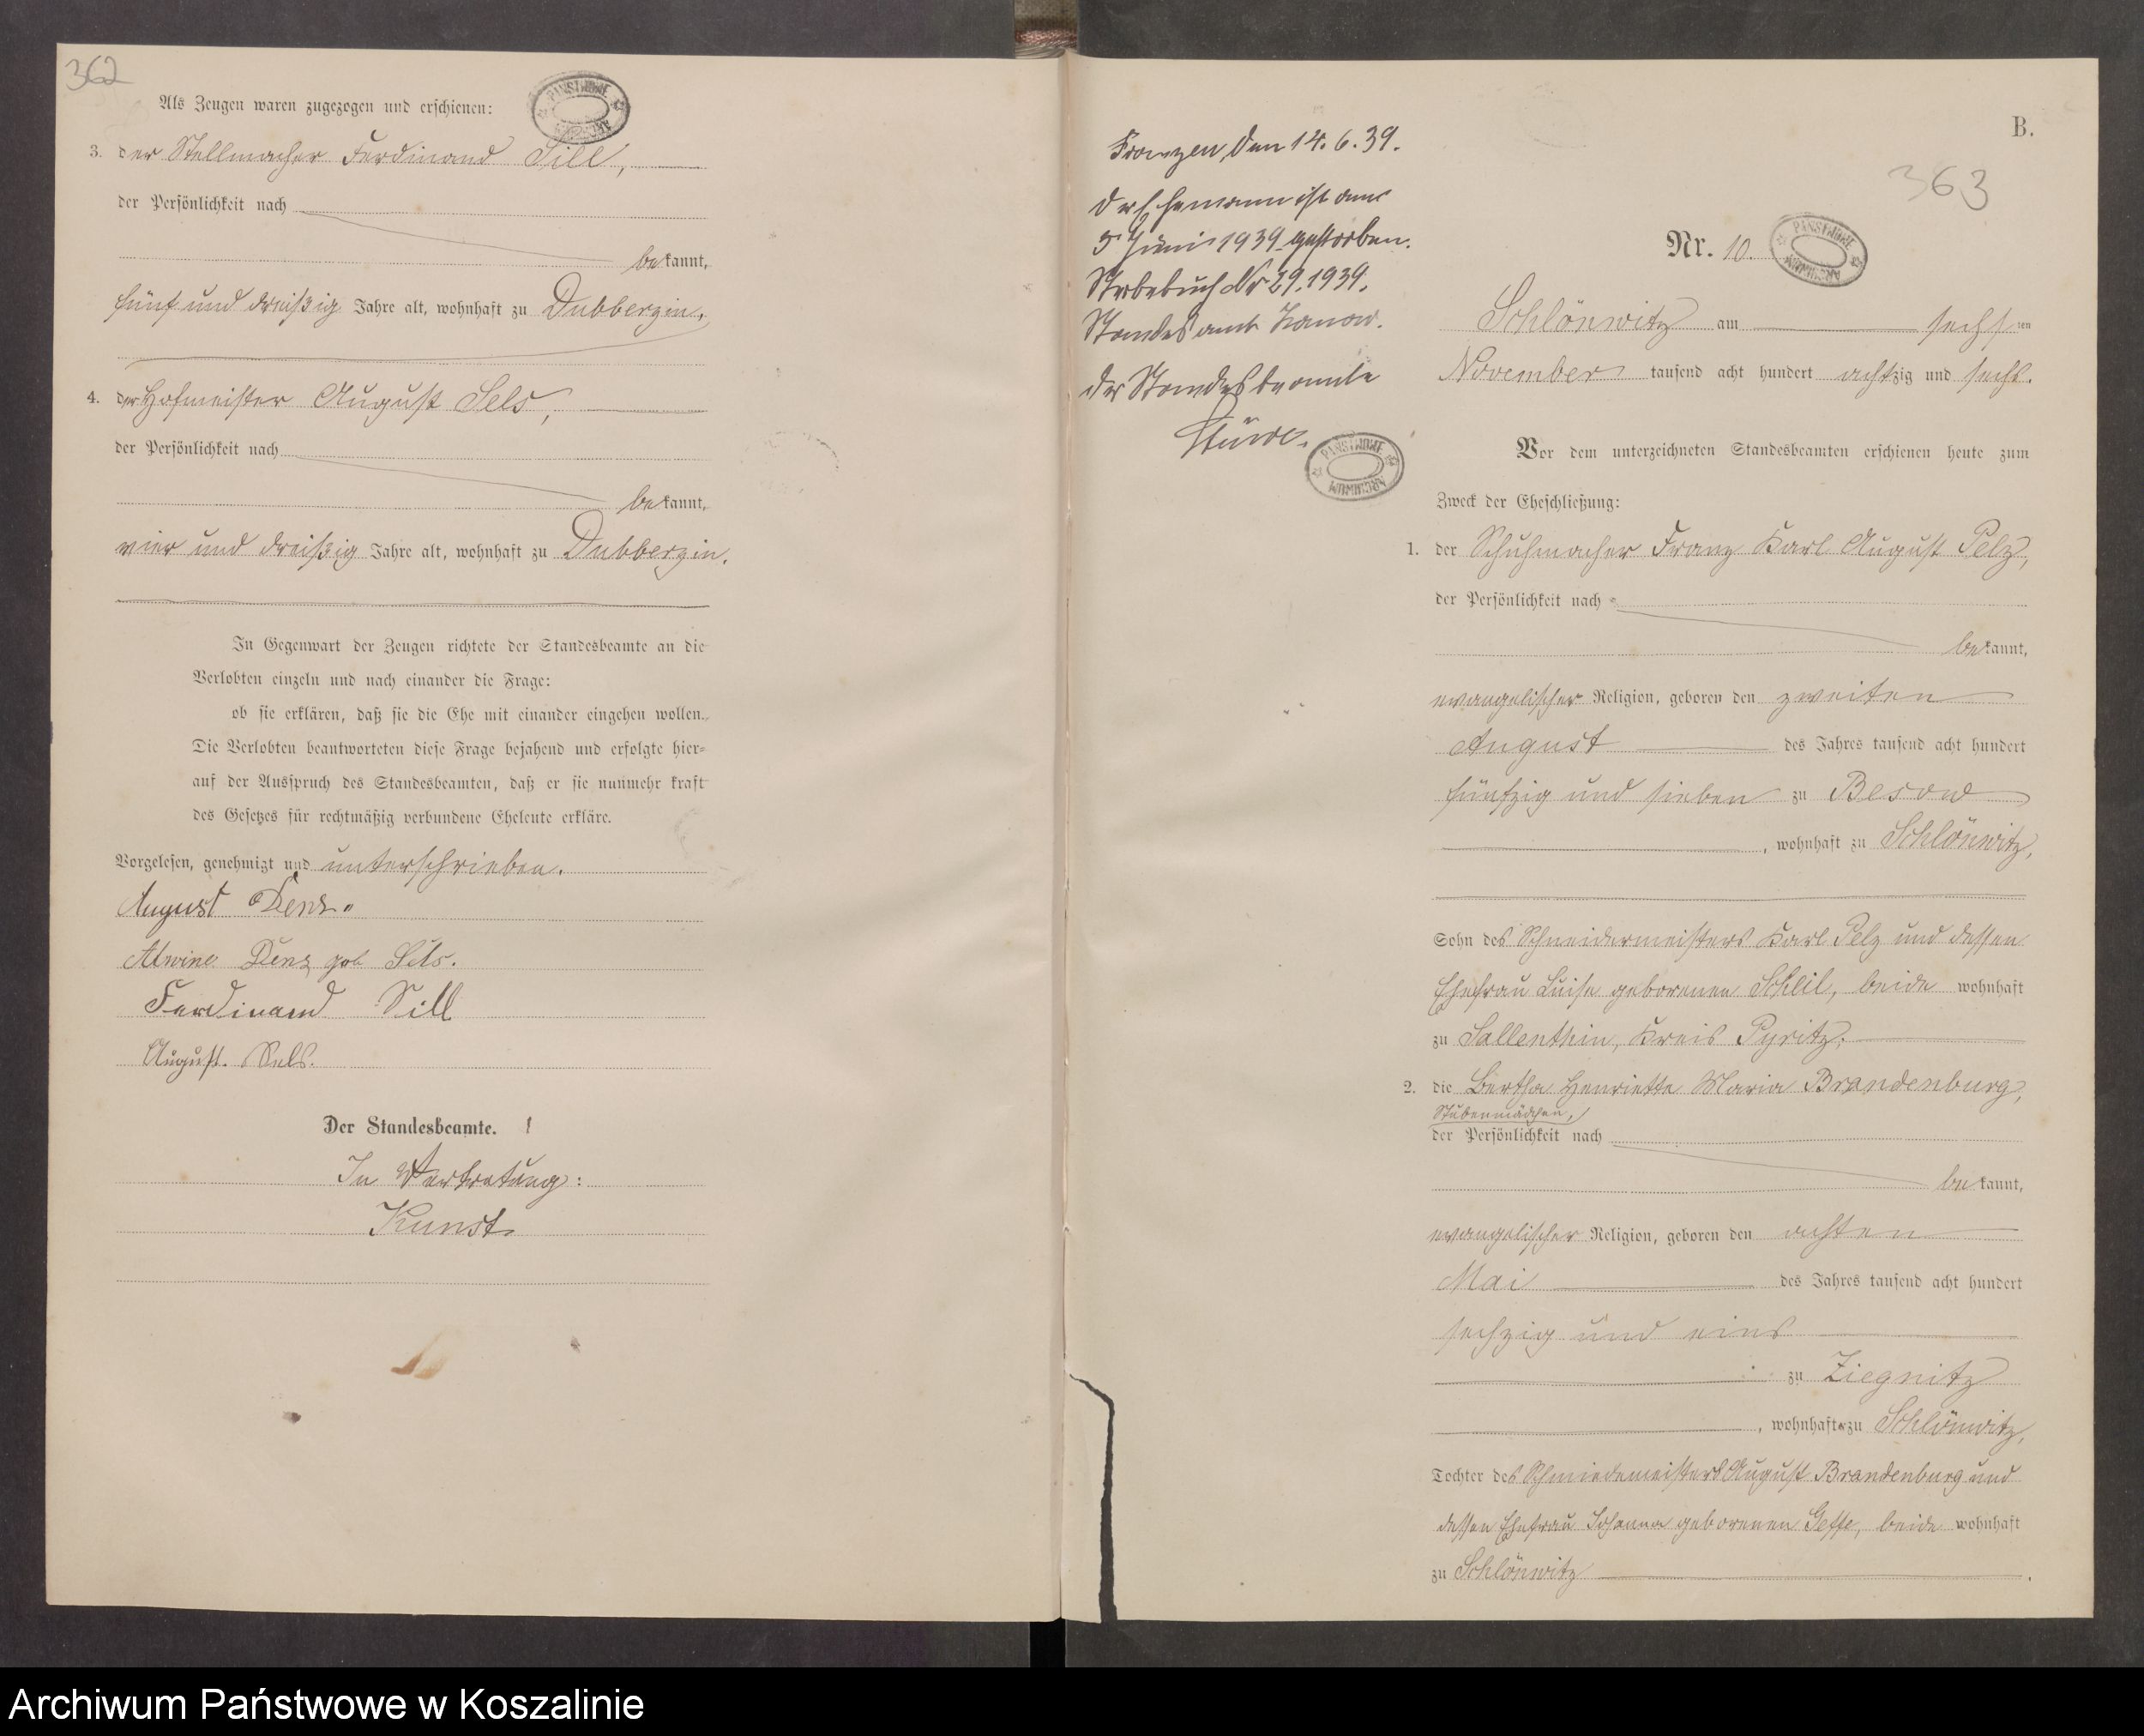 362
Als Zeugen waren zugezogen und erschienen:
PAŃSTWOWE ARCHIWUM
3. der Stellmacher Ferdinand Sill,
der Persönlichkeit nach
bekannt,
fünf und dreißig Jahre alt, wohnhaft zu Dubberzin.
4. der Hofmeister August Sels,
der Persönlichkeit nach
bekannt,
vier und dreißig Jahre alt, wohnhaft zu Dubberzin.
In Gegenwart der Zeugen richtete der Standesbeamte an die
Verlobten einzeln und nach einander die Frage:
ob sie erklären, daß sie die Ehe mit einander eingehen wollen.
Die Verlobten beantworteten diese Frage bejahend und erfolgte hier-
auf der Ausspruch des Standesbeamten, daß er sie nunmehr kraft
des Gesetzes für rechtmäßig verbundene Eheleute erkläre.
Vorgelesen, genehmigt und unterschrieben.
August Denz
Alwine Denz geb Sels.
Ferdinand Sill
August. Sels.
Der Standesbeamte.
In Vertretung:
Kunst
Franzen, den 14. 6. 39.
Der Ehemann ist am
5 Juni 1939 gestorben.
Sterbebuch Nr 29. 1939.
Standesamt Zanow.
Der Standesbeamte
PAŃSTWOWE ARCHIWUM
B.
363
Nr. 10.
PAŃSTWOWE ARCHIWUM
Schlönwitz am sechsten
November tausend acht hundert achtzig und sechs.
Vor dem unterzeichneten Standesbeamten erschienen heute zum
Zweck der Eheschließung:
1. der Schuhmacher Franz Karl August Pelz,
der Persönlichkeit nach
bekannt,
evangelischer Religion, geboren den zweiten
August des Jahres tausend acht hundert
fünfzig und sieben zu Besow
, wohnhaft zu Schlönwitz,
Sohn des Schneidermeisters Karl Pelz und dessen
Ehefrau Luise geborenen Schlil, beide wohnhaft
zu Sallenthin, Kreis Pyritz.
2. die Bertha Henriette Maria Brandenburg,
Stubenmädchen,
der Persönlichkeit nach
bekannt,
evangelischer Religion, geboren den achten
Mai des Jahres tausend acht hundert
sechzig und eins
zu Ziegnitz
, wohnhaft zu Schlönwitz,
Tochter des Schmiedemeisters August Brandenburg und
dessen Ehefrau Johanna geborenen Geffe, beide wohnhaft
zu Schlönwitz.
Archiwum Państwowe w Koszalinie